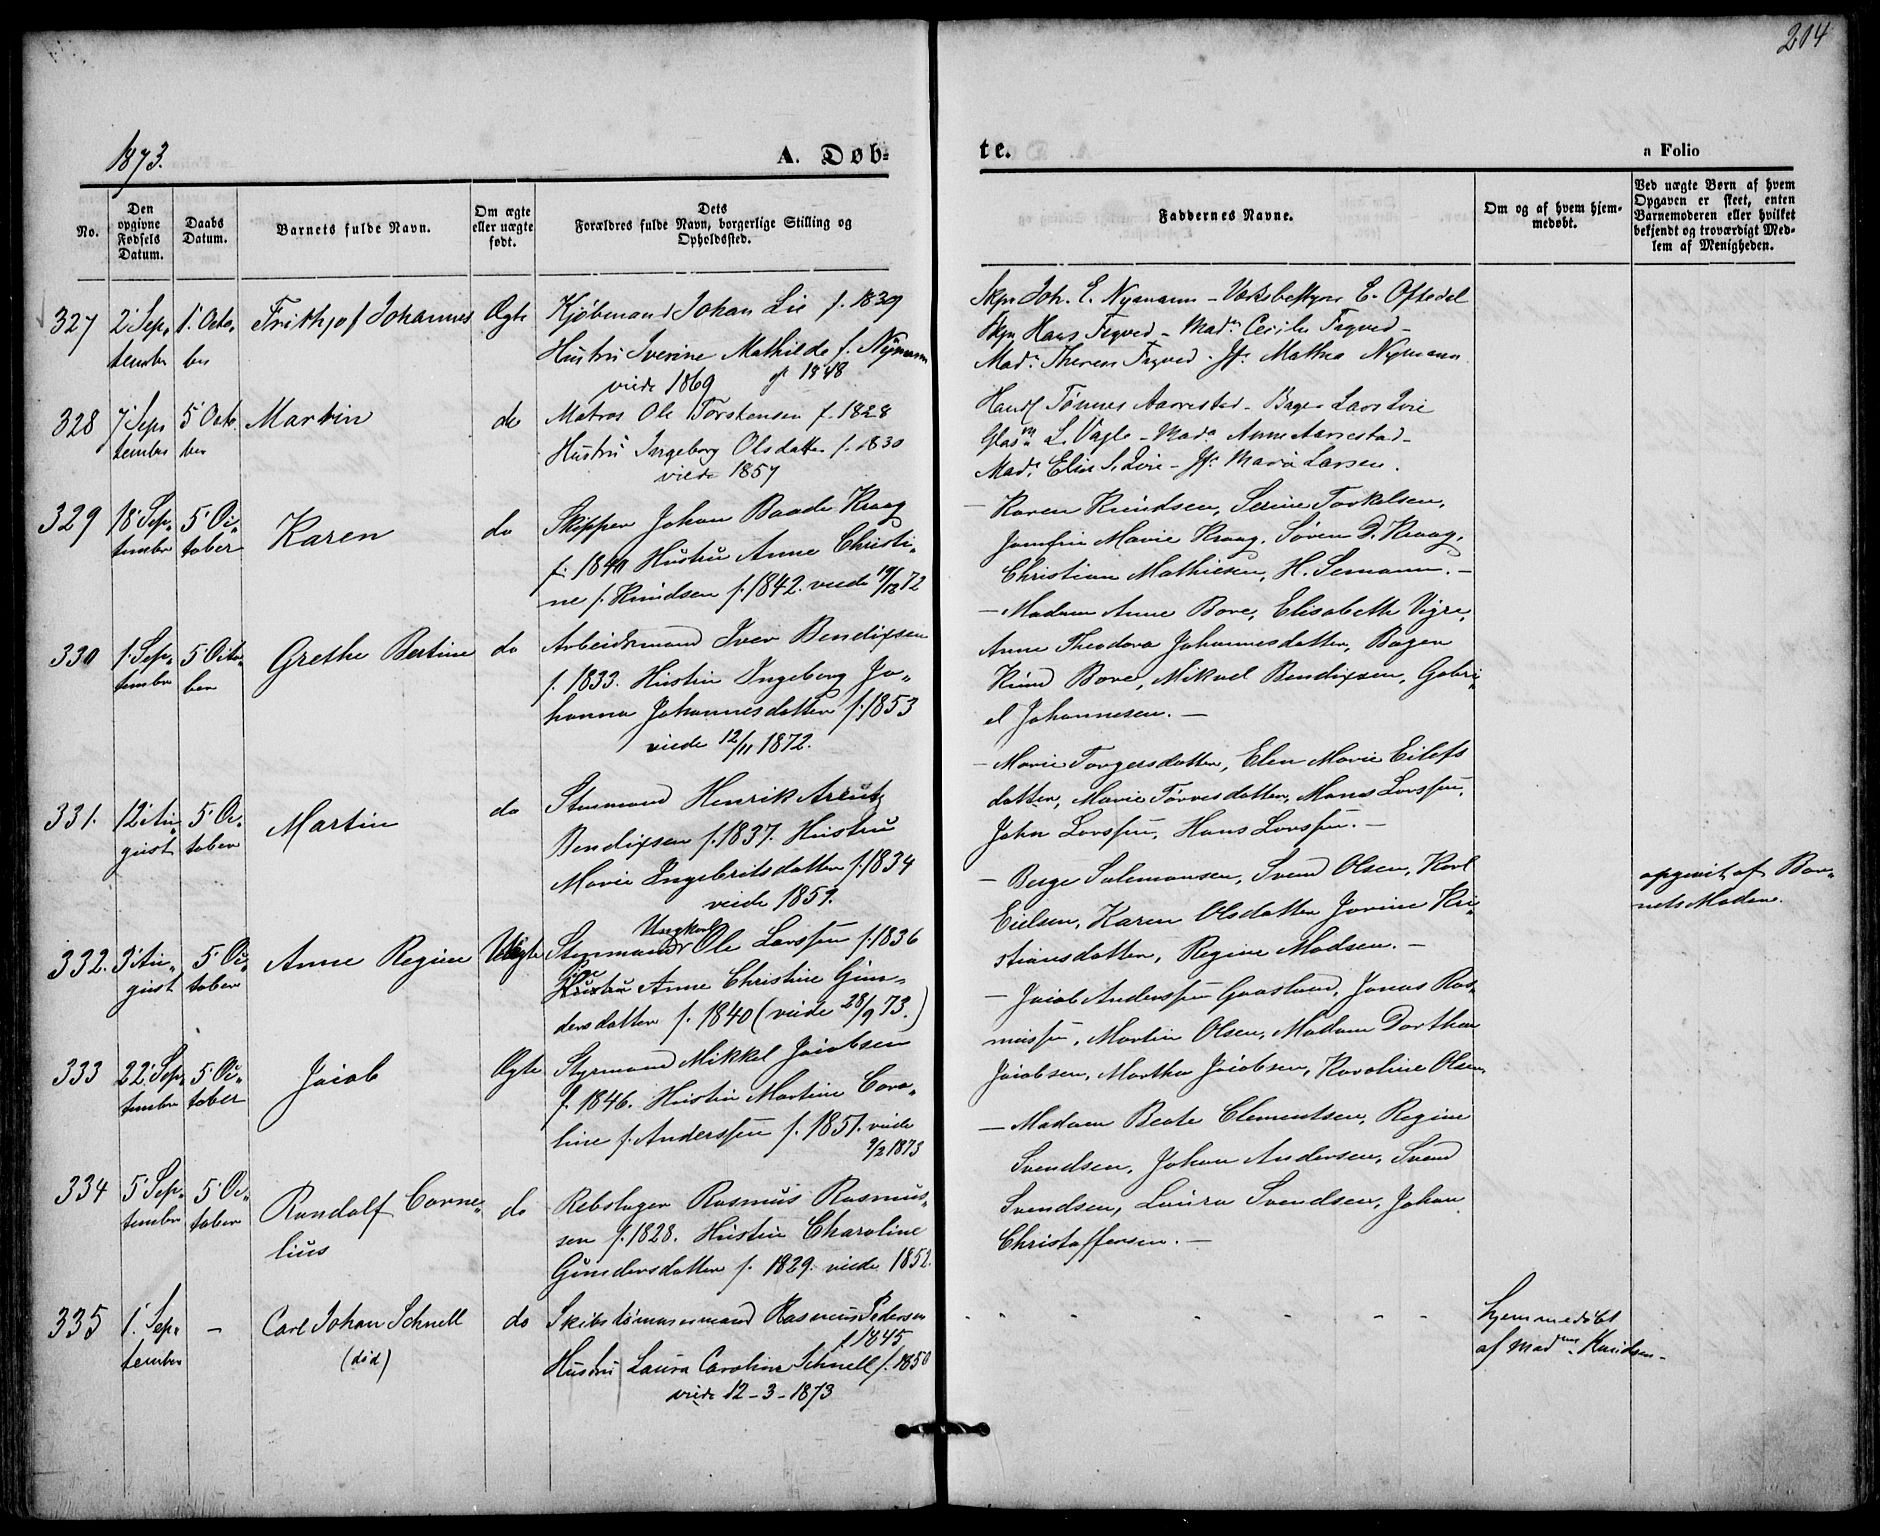 204
1873.
A. Døb-
te.
a Folio
No.
Den opgivne Fødsels Datum.
Daabs Datum.
Barnets fulde Navn.
Om ægte eller uægte født.
Dets Forældres fulde Navn, borgerlige Stilling og Opholdssted.
Faddernes Navne.
Om og af hvem hjemmedøbt.
Ved uægte Børn af hvem
Opgaven er skeet, enten
Barnemoderen eller hvilket
bekjendt og troværdigt Med-
lem af Menigheden.
327
2' Sep-
tember
1' Octo-
ber
Frithjof Johannes
Ægte
Kjøbmand Johan Lie f. 1839
Hustru Iverine Mathilde f. Nymann
viede 1869 gf 1848
Skpr Joh. E. Nymann - Værksbestyrer E. Oftedal
Skpr Hans Tegved - Mad. Cecilie Tegved -
Mad. Therese Tegved - Jfr Mathea Nymann
328
7' Sep-
tember
5' Octo-
ber
Martin
do
Matros Ole Torstensen f. 1828
Hustru Ingeborg Olsdatter f. 1830
viede 1857
Handl Tønnes Aarrestad - Bager Lars
Glasm L. Vagle - Mada Anne Aarrestad -
Mad. Elin S. - Jfr Maria Larsen.
329
18' Sep-
tember
5' Oc-
tober
Karen
do
Skipper Johan Baade Kraag
f. 1840 Hustru Anne Christi-
ne f. Knudsen f. 1842. viede 19/12 72
- Karen Knudsen, Serine Torkelsen,
Jomfru Marie Kraag, Søren D. Kraag,
Christian Mathiesen, H. Semann. -
330
1' Sep-
tember
5' Octo-
ber
Grethe Bertine
do
Arbeidsmand Iver Bendixsen
f. 1833. Hustru Ingeborg Jo-
hanna Johannesdatter f. 1853
viede 12/11 1872.
- Madam Anne Bore, Elisabeth Vigre,
Anne Theodora Johannesdatter, Bager
Knud Bore, Mikael Bendixsen, Gabri-
el Johannesen. -
331.
12' Au-
gust
5' Oc-
tober
Martin
do
Sturmand Henrik Arentz
Bendixsen f. 1837. Hustru
Marie Ingebritsdatter f. 1834
viede 1859.
- Marie Torgersdatter, Elen Marie Eilefs
datter, Marie Tørresdatter, Mons Larssen,
John Larssen, Hans Larssen. -
332.
3' Au-
gust
5' Oc-
tober
Anne Regine
Uægte
Ungkarl
Sturmand Ole Larssen f. 1836
Pige
Hustru Anne Christine Gun-
dersdatter f. 1840 (viede 28/9 73.)
- Berge Salemonsen, Svend Olsen, Karl
Eielsen, Karen Olsdatter Jorine Kri-
stiansdatter, Regine Madsen. -
opgivet af Bar-
nets Moder.
333
22' Sep-
tember
5' Oc-
tober
Jacob
Ægte
Styrmand Mikkel Jacobsen
f. 1846. Hustru Martine Caro-
line f. Anderssen f. 1851. viede
9/2 1873
- Jacob Anderssen Gaasland, Jonas Ras-
mussen, Martin Olsen, Madam Dorthea
Jacobsen, Martha Jacobsen, Karoline Olsen,
334
5' Sep-
tember
5' Oc-
tober
Randolf Corne-
lius
do
Rebslager Rasmus Rasmus-
sen f. 1828. Hustru Charoline
Gundersdatter f. 1829. viede 1852.
- Madam Beate Clementsen, Regine
Svendsen, Johan Andersen, Svend
Svendsen, Laura Svendsen, Johan
Christoffersen. -
335
1' Sep-
tember
-
Carl Johan Schnell
(død)
do
Skibstømmermand Rasmus Pedersen
f. 1845
Hustru Laura Caroline Schnell f. 1850
viede 12-3-1873
hjemmedøbt
af Madme Knudsen -